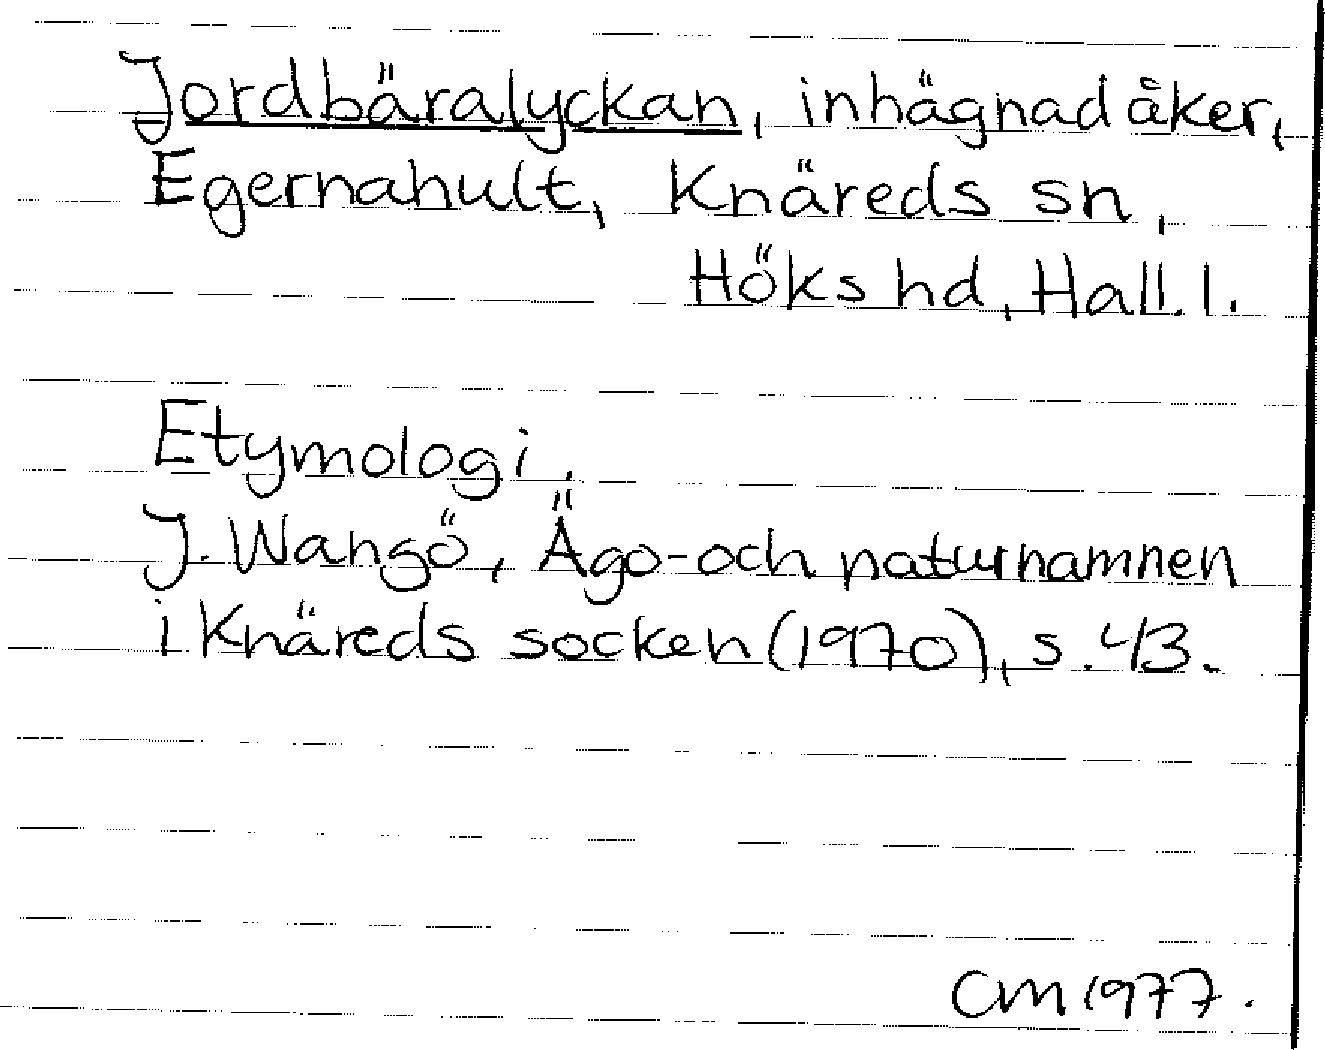 Jordbäralyckan, inhägnad åker,
Egernahult, Knäreds sn,
Höks hd, Hall. l.
Etymologi.
J. Wangö, Ägo- och naturnamnen
i Knäreds socken (1970), s. 43.
CM 1977.